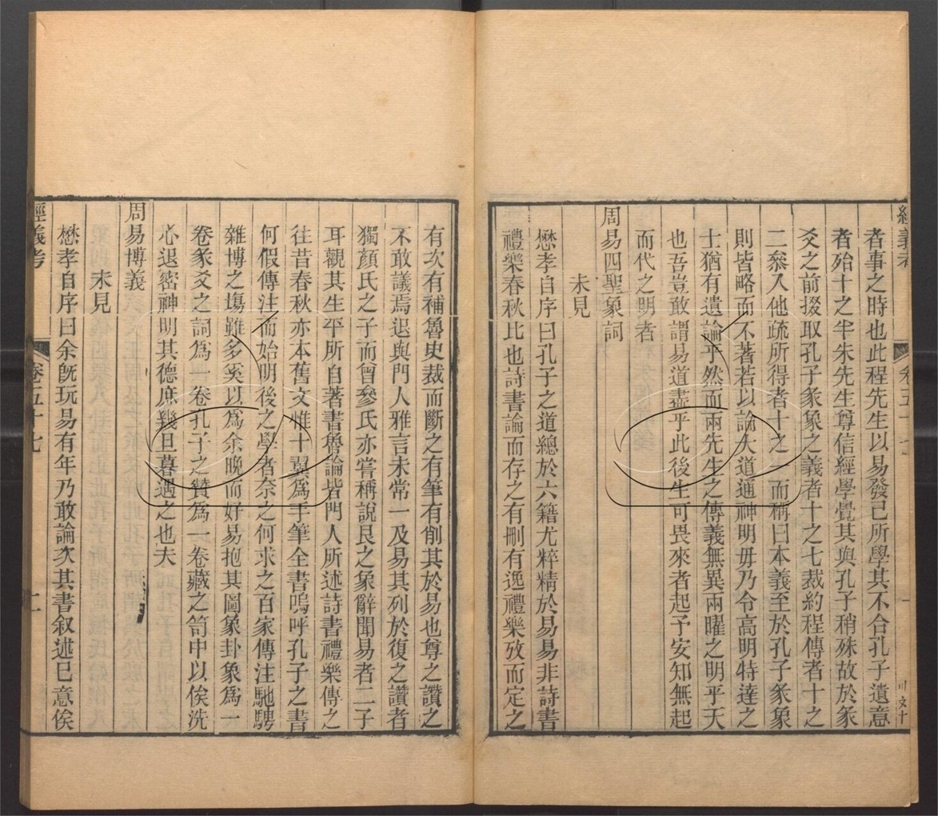 經義考
卷五十七
一
者事之時也此程先生以易發己所學其不合孔子遺意
者殆十之半朱先生尊信經學覺其與孔子稍殊故於彖
爻之前掇取孔子彖象之義者十之七裁約程傳者十之
二叅入他疏所得者十之一而稱曰本義至於孔子彖象
則皆略而不著若以論大道通神明毋乃令高明特達之
士猶有遺論乎然而兩先生之傳義無異兩曜之明乎天
也吾豈敢謂易道盡乎此後生可畏來者起予安知無起
而代之明者
周易四聖象詞
未見
懋孝自序曰孔子之道總於六籍尤粹精於易易非詩書
禮樂春秋比也詩書論而存之有刪有逸禮樂攷而定之
有次有補魯史裁而斷之有筆有削其於易也尊之讚之
不敢議焉退與門人雅言未常一及易其列於復之讚者
獨顏氏之子而曾參氏亦嘗稱說艮之象辭聞易者二子
耳觀其生平所自著書魯論皆門人所述詩書禮樂傳之
往昔春秋亦本舊文惟十翼爲手筆全書嗚呼孔子之書
何假傳注而始明後之學者奈之何求之百家傳注馳騁
雜博之塲難多奚以爲余晚而好易抱其圖象卦象爲一
卷彖爻之詞爲一卷孔子之賛爲一卷藏之笥中以俟洗
心退密神明其德庶幾旦暮遇之也夫
周易博義
未見
懋孝自序曰余旣玩易有年乃敢論次其書叙述已意俟
經義考
卷五十七
二